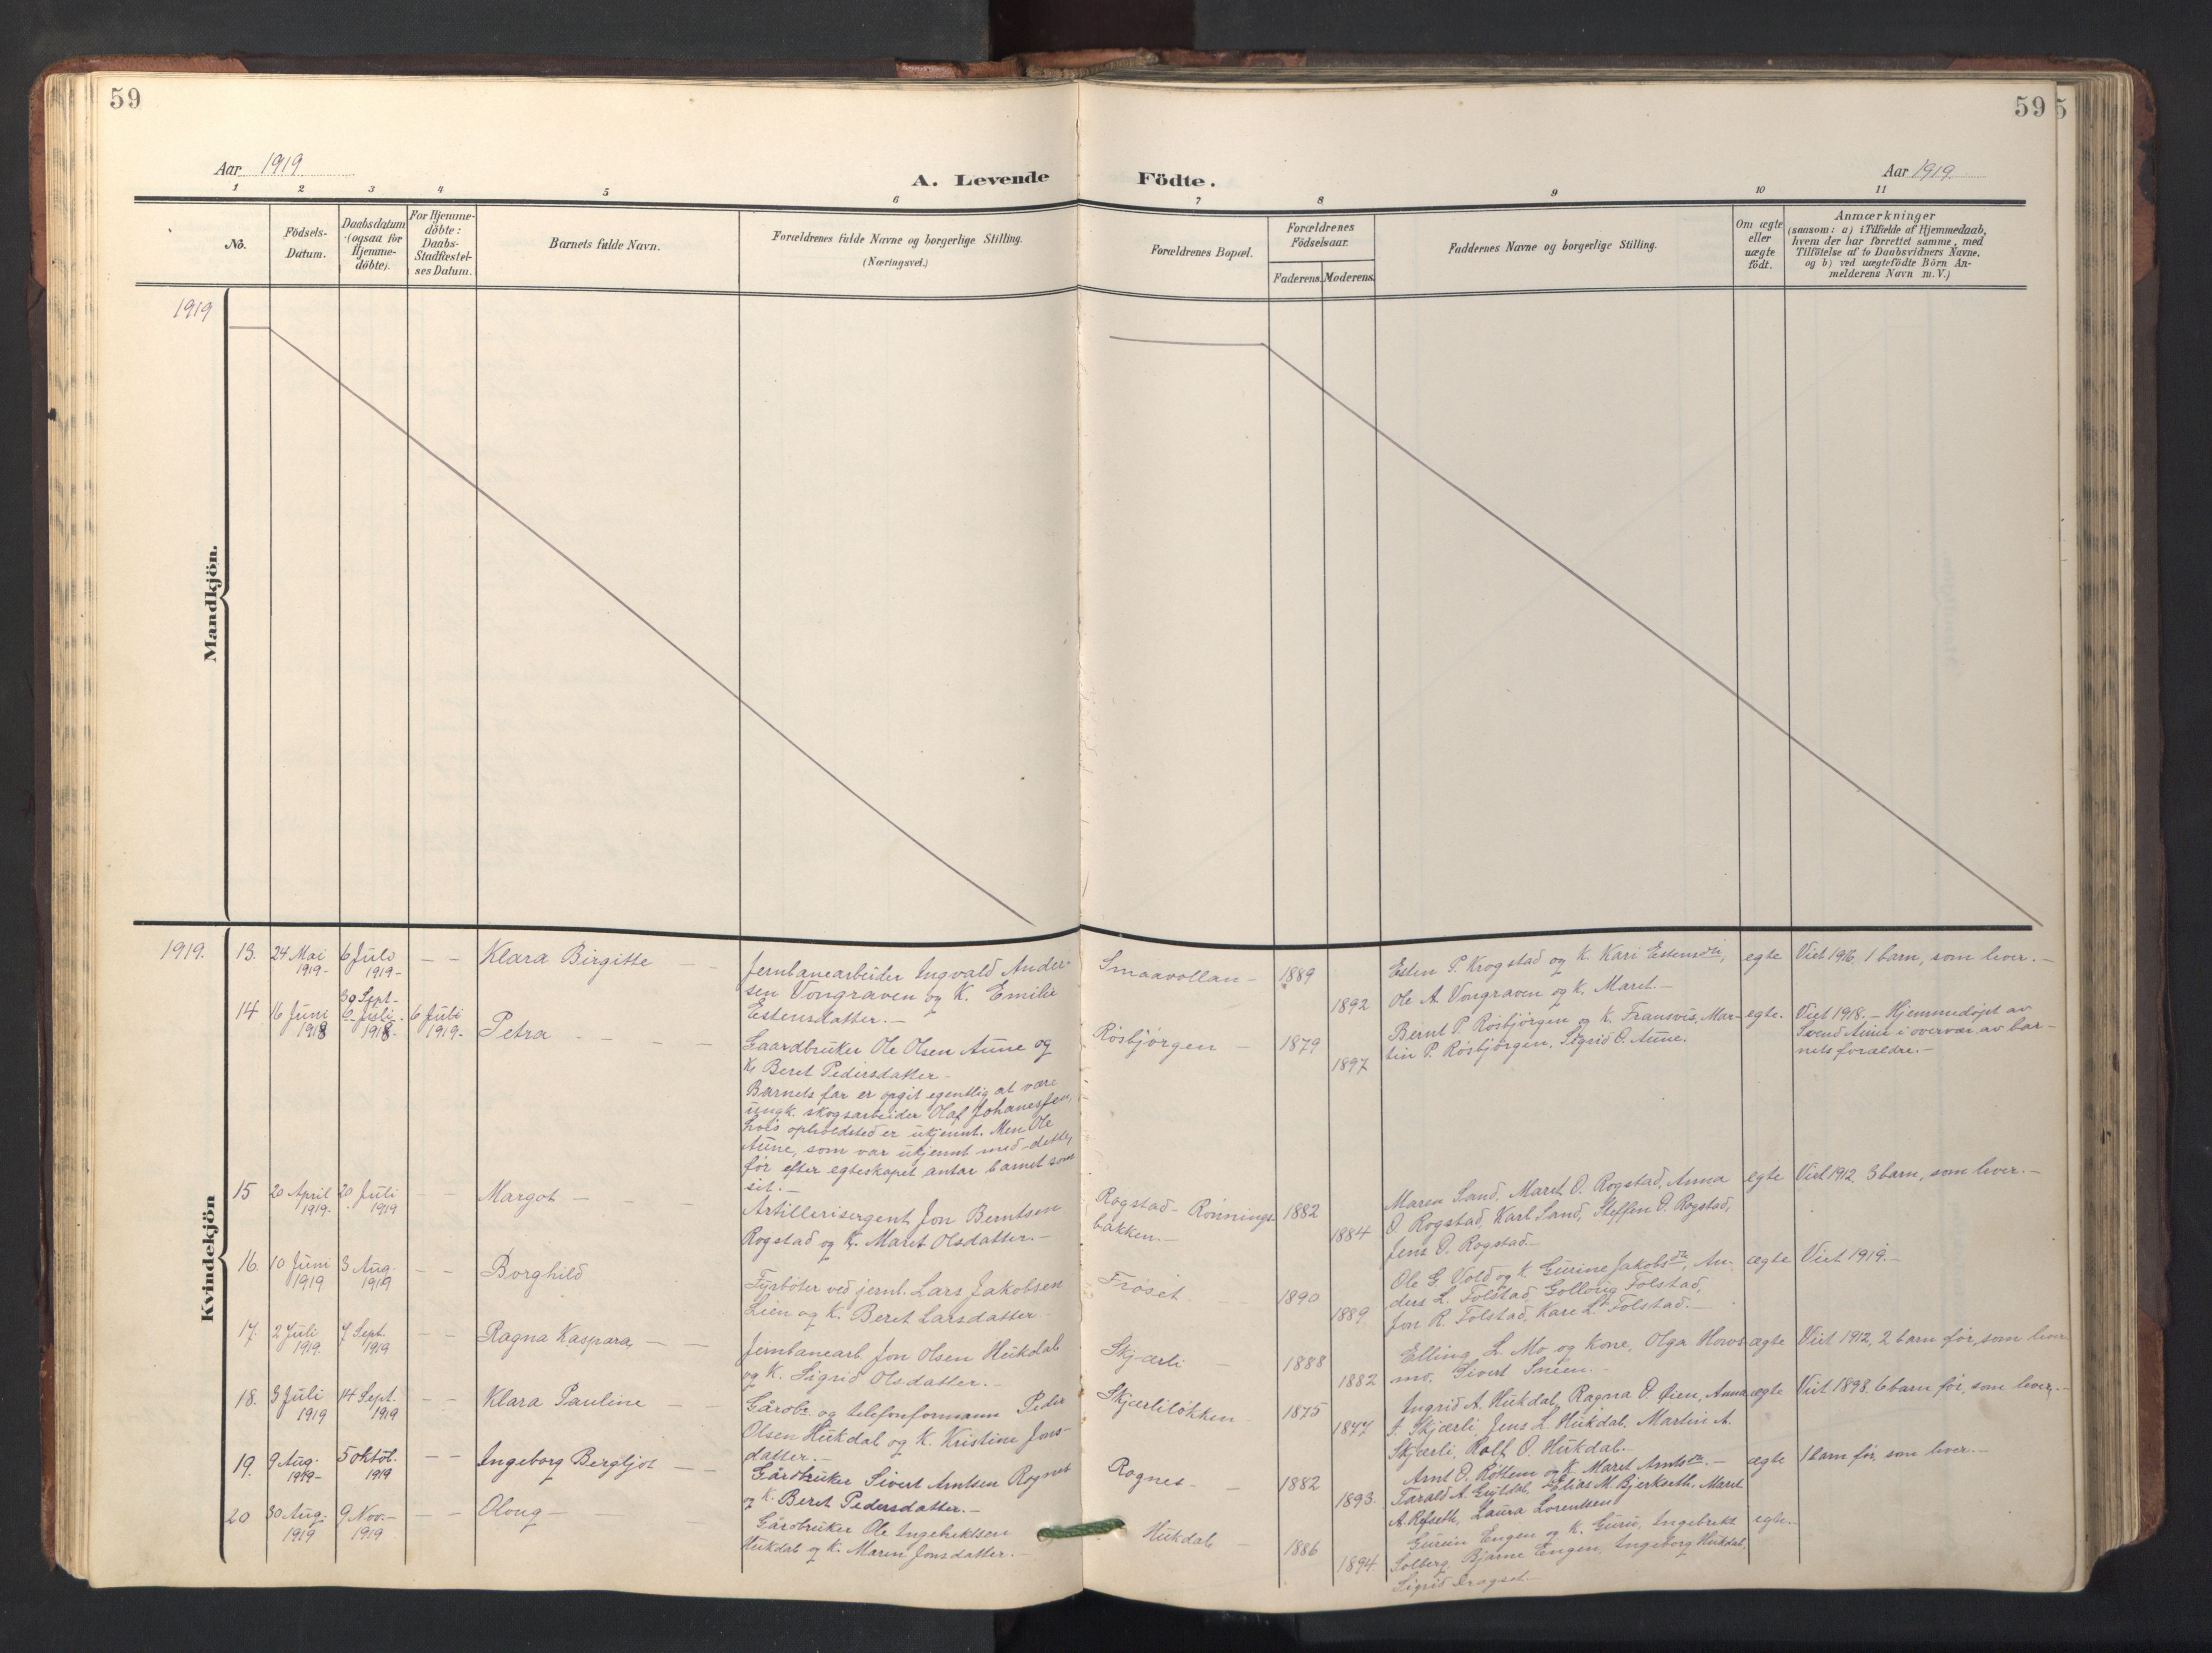 59
59
5
Aar 1919
A. Levende Födte.
Aar 1919.
1 2 3 4 5 6 7 8 9 10 11
No.
Födsels-
Datum.
Daabsdatum
(ogsaa for
Hjemme-
döbte).
For Hjemme-
döbte:
Daabs-
Stadfæstel-
ses Datum.
Barnets fulde Navn.
Forældrenes fulde Navne og borgerlige Stilling.
(Næringsvei.)
Forældrenes Bopæl.
Forældrenes
Födselsaar.
Faderens. Moderens.
Faddernes Navne og borgerlige Stilling.
Om ægte
eller
uægte
födt.
Anmærkninger
(saasom: a) i Tilfælde af Hjemmedaab,
hvem der har forrettet samme, med
Tilföielse af to Daabsvidners Navne.
og b) ved uægtefödte Börn An-
melderens Navn m. V.)
1919
Mandkjön.
Kvindekjön
1919.
13.
24 Mai
1919-
6 Juli
1919-
Klara Birgitte
Jernbanearbeider Ingvald Ander-
sen Vongraven og K. Emilie
Estensdatter.-
Smaavollan-
1889
1892
Esten P. Krogstad og K. Kari Estensdtr,
Ole A. Vongraven og K. Maret.-
egte
Viet 1916, 1 barn, som lever.-
14
16 Juni
1918
30 Sept-
6 Juli
1918-
6 Juli
1919-
Petra
Gaardbruker Ole Olsen Aune og
K. Beret Pedersdatter-
Barnets far er opgit egentlig at være
ungk. skogsarbeider Olaf Johanesen,
hvis opholdsted er ukjennt. Men Ole
Aune, som var ukjennt med dette,
før efter egteskapet antar barnet som
sit.-
Røsbjørgen
1879
1897
Bernt P. Røsbjørgen og K. Fransvis, Mar-
tin P. Røsbjørgen, Sigrid O. Aune.
egte.
Viet 1918.- Hjemmedøpt av
Svend Aune i overvær av bar-
nets forældre.-
15
20 April
1919.
20 Juli
1919
Margot
Artillerisergent Jon Berntsen
Rogstad og K. Maret Olsdatter.-
Rogstad- Rønnings-
bakken.-
1882
1884
Maren Sand, Maret O. Rogstad, Anna
O. Rogstad, Karl Sand, Steffen O. Rogstad,
Jens O. Rogstad.-
egte
Viet 1912, 3 barn, som lever.-
16.
10 Juni
1919
3 Aug.
1919
Borghild
Fyrbøter ved jernb. Lars Jakobsen
Lien og K. Beret Larsdatter.
Frøset.
1890
1889
Ole G. Vold og K. Gurine Jakobsdtr, An-
ders L. Tolstad, Gollaug Tolstad,
Jon R. Tolstad, Kare L. Tolstad.-
ægte
Viet 1919.-
17.
2 Juli
1919.
7 Sept.
1919
Ragna Kaspara,
Jernbanearb. Jon Olsen Hukdal
og K. Sigrid Olsdatter.-
Skjærli
1888
1882
Elling L. Mo og Kone, Olga Hovs-
mo, Sivert Snëen.-
ægte
Viet 1912, 2 barn før, som lever
18.
3 Juli
1919
14 Sept.
1919
Klara Pauline
Gårdbr. og telefonformann Peder
Olsen Hukdal og K. Kristine Jons-
datter.-
Skjærliløkken
1875
1877
Ingrid A. Hukdal, Ragna O. Øien, Anna
J. Skjærli, Jens L. Hukdal, Martin A.
Skjærli, Rolf O. Hukdal.-
ægte
Viet 1898. 6 barn før, som lever.-
19.
9 Aug.
1919-
5 oktob.
1919
Ingeborg Bergljot
Gårdbruker Sivert Arntsen Rognes
og K. Beret Pedersdatter.-
Rognes-
1882
1893.
Arnt O. Røttem og K. Maret Arntsdtr.-
Tarald A. Gyldal, Elias M. Bjerkseth, Maret
A. Refseth, Laura Lorentsen
ægte
1 barn før, som lever.-
20
30 Aug.
1919
9 Nov.-
1919
Oloug
Gårdbruker Ole Ingebrektsen
Hukdal og K. Maren Jonsdatter.-
Hukdal
1886
1894.
Engen og K. Guru, Ingebrekt
Solberg, Bjarne Engen, Ingeborg Hukdal,
Sigrid Dragset.-
egte.-